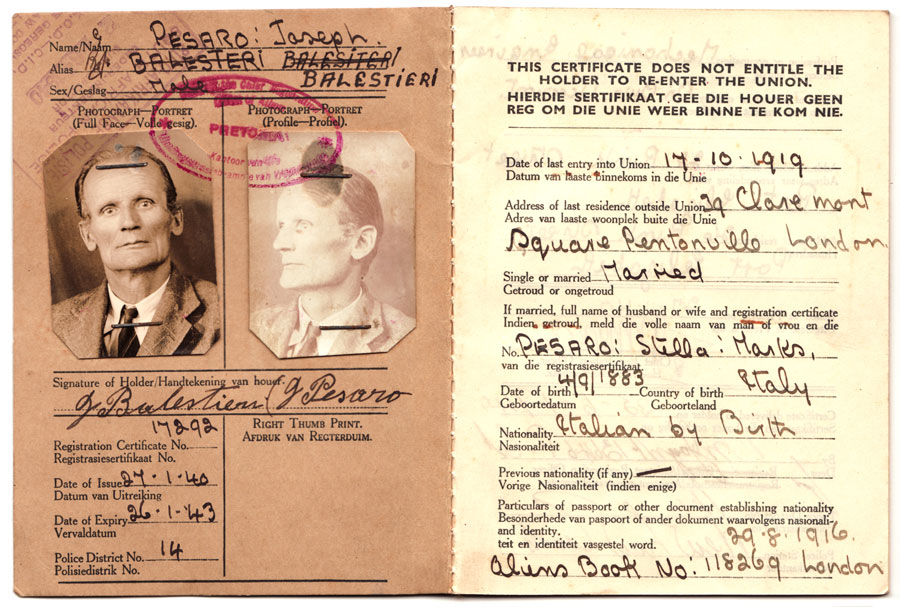 Name/Naam PESARO: Joseph.
Alias BALESTERI BALESITERI
BALESTIERI
Sex/Geslag Male
PHOTOGRAPH—PORTRET
(Full Face—Volle gesig).
PHOTOGRAPH—PORTRET
(Profile—Profiel).
PRETORIA
Signature of Holder/Handtekening van houer
J Balestieri (J Pesaro
17292
Registration Certificate No.
Registrasiesertifikaat No.
RIGHT THUMB PRINT.
AFDRUK VAN REGTERDUIM.
Date of Issue 27-1-40
Datum van Uitreiking
Date of Expiry 26-1-43
Vervaldatum
Police District No. 14
Polisiedistrik No.
THIS CERTIFICATE DOES NOT ENTITLE THE
HOLDER TO RE-ENTER THE UNION.
HIERDIE SERTIFIKAAT GEE DIE HOUER GEEN
REG OM DIE UNIE WEER BINNE TE KOM NIE.
Date of last entry into Union 17-10-1919
Datum van laaste binnekoms in die Unie
Address of last residence outside Union 39 Claremont
Adres van laaste woonplek buite die Unie
Square Pentonville London.
Single or married Married
Getroud or ongetroud
If married, full name of husband or wife and registration certificate
Indien getroud, meld die volle naam van man of vrou en die
No. PESARO: Stella: Marks,
van die registrasiesertifikaat.
Date of birth 4/9/1883 Country of birth Italy
Geboortedatum Geboorteland
Nationality Italian by Birth
Nasionaliteit
Previous nationality (if any) —
Vorige Nasionaliteit (indien enige)
Particulars of passport or other document establishing nationality
Besonderhede van paspoort of ander dokument waarvolgens nasionali-
and identity. 29·8·1916.
teit en identiteit vasgestel word.
Aliens Book No: 118269 London